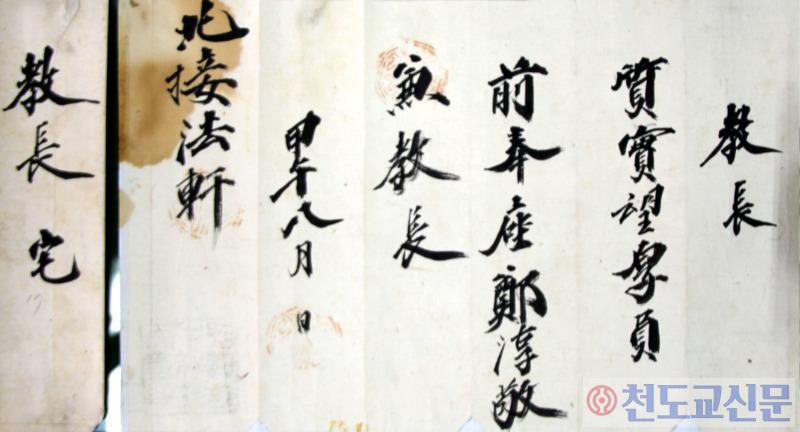 教長
質實望厚員
前奉座鄭淳敬
教長
甲午八月 日
北接法軒
教長 宅
천도교신문